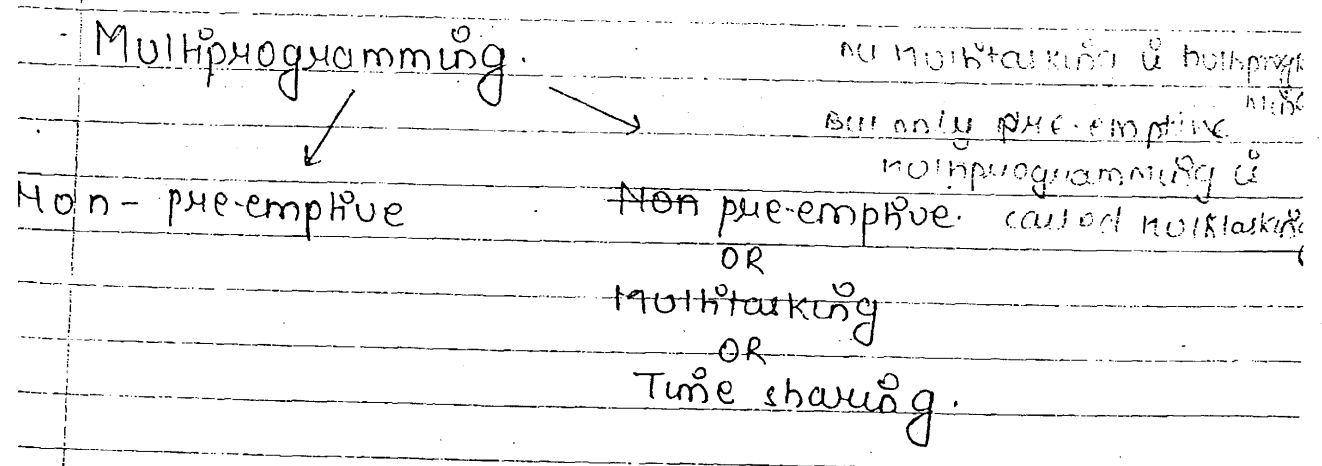 Multiprogramming.
All multitasking is multiprogramming
But only pre-emptive
multiprogramming is
called multitasking
Non - pre-emptive
Non pre-emptive.
OR
Multitasking
OR
Time sharing.